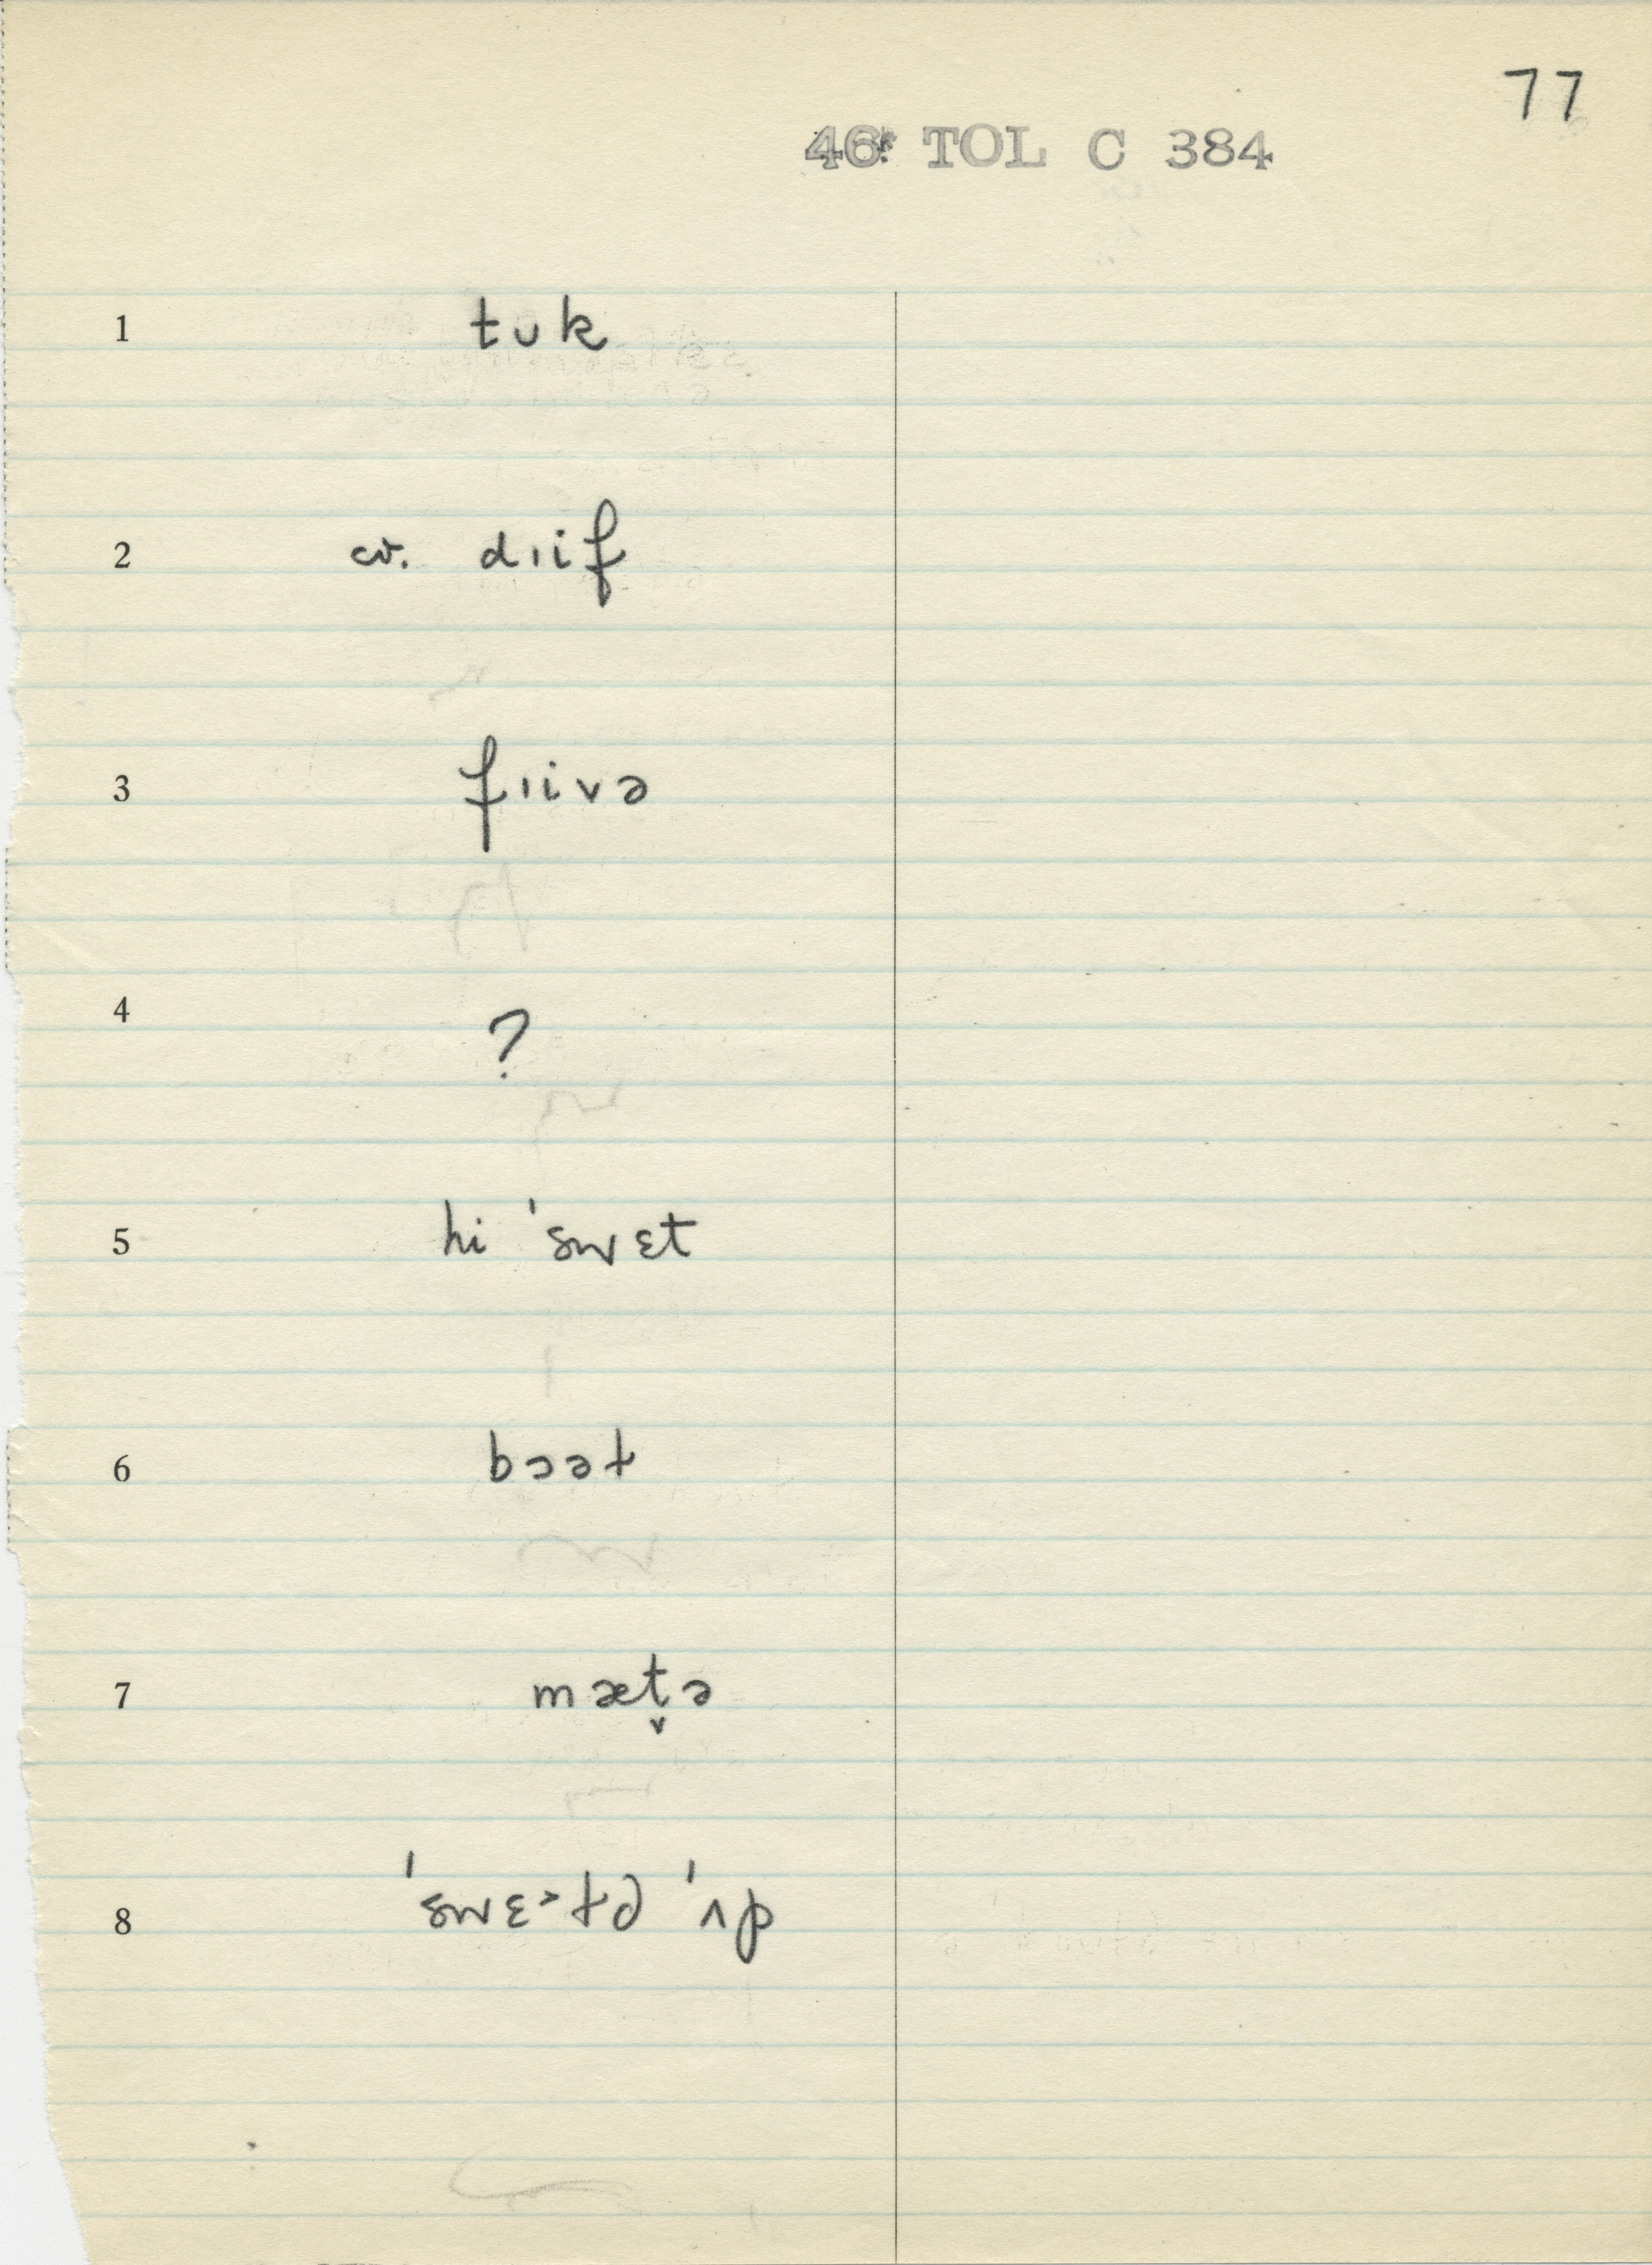 77
46 TOL C 384
1 tʊk
2 cv. dɪif
3 fɪivə
4 ?
5 hi ˈswɛt
6 bɔət
7 mæt̬ə
8 ˈswɛ˃tɪd ˈʌp